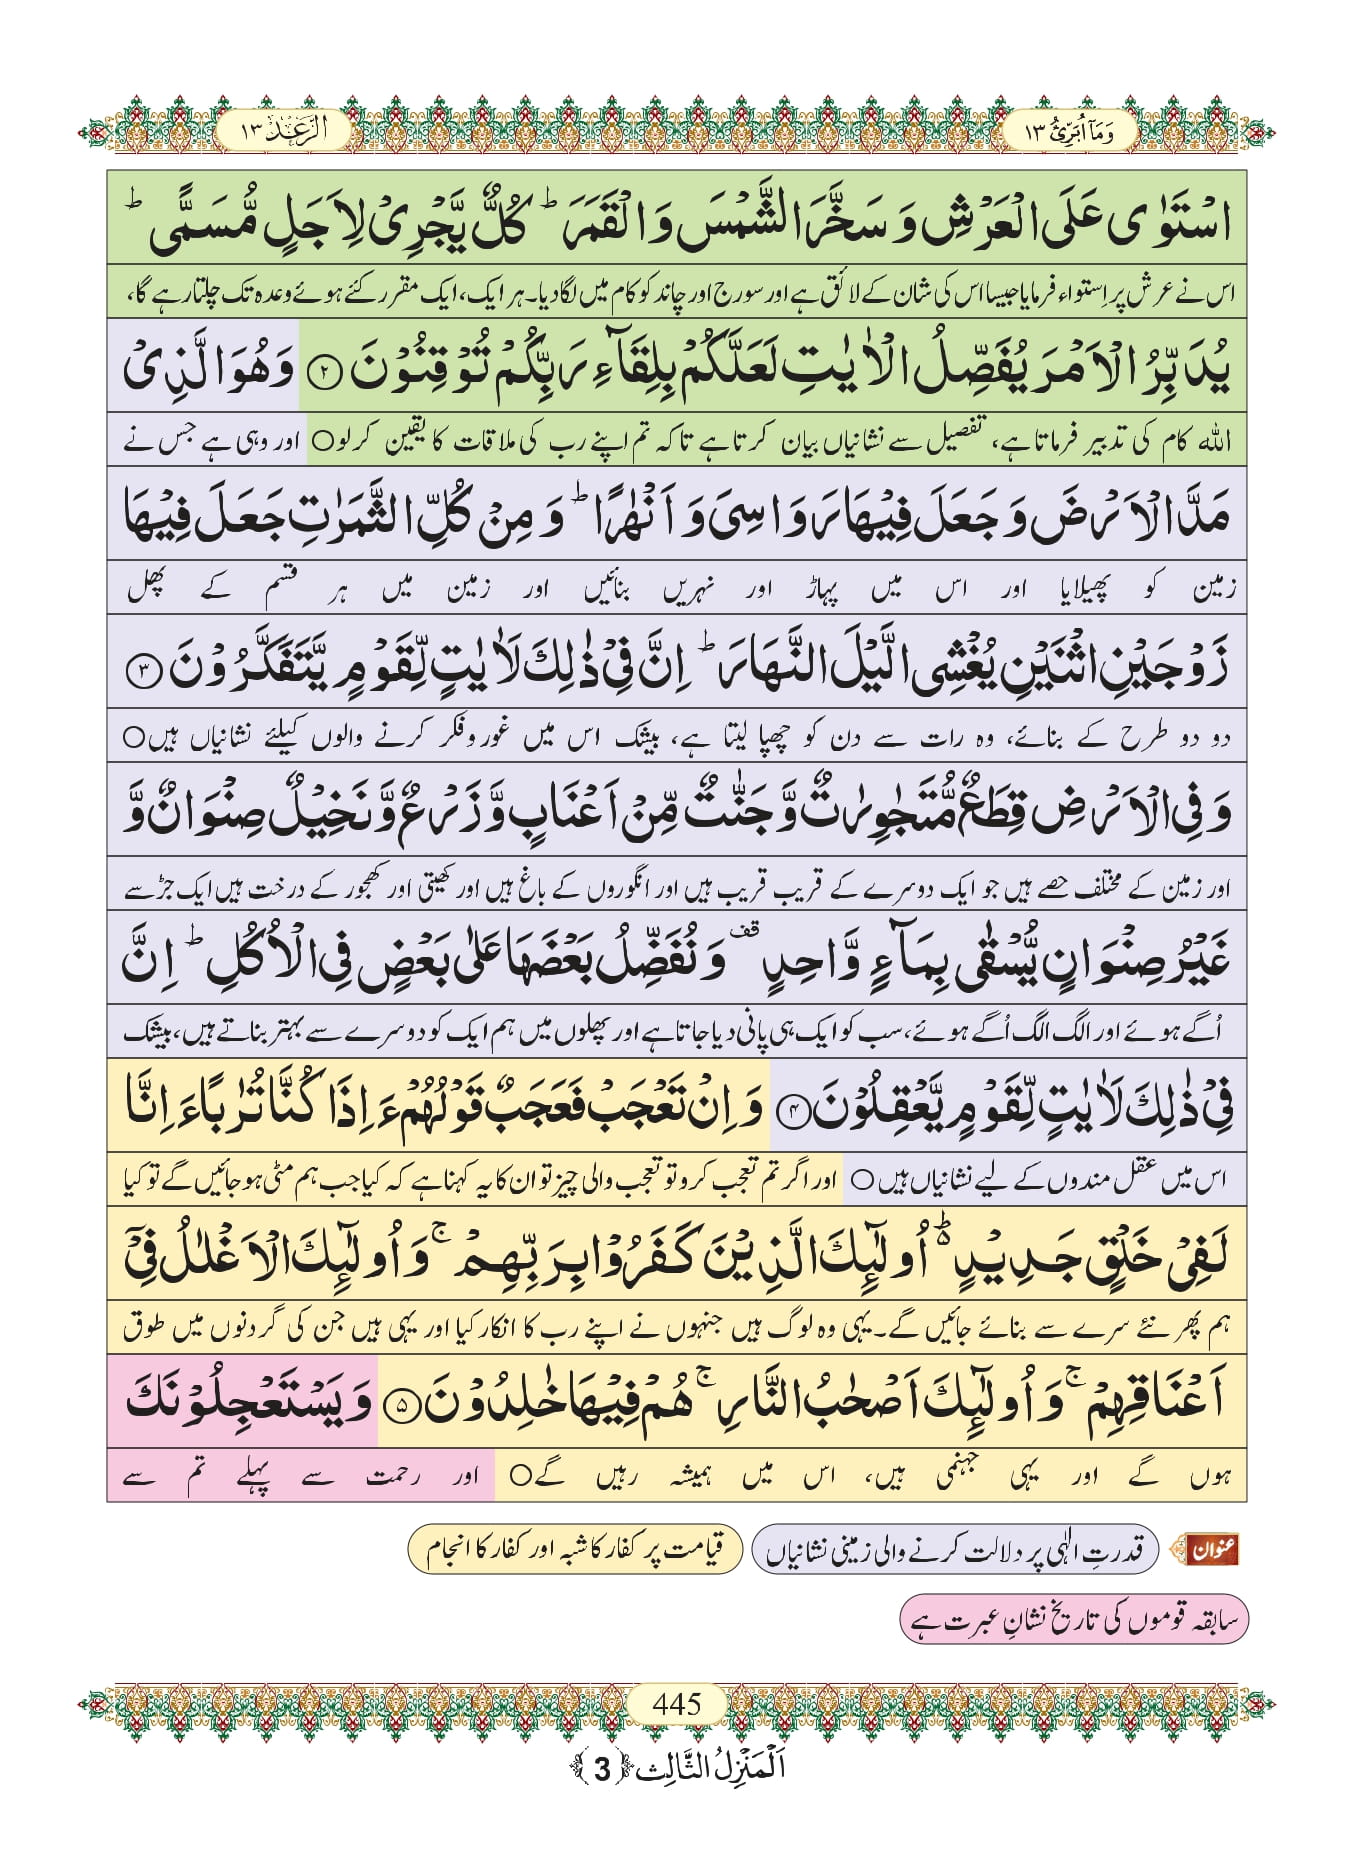 وَمَاۤ اُبَرِّئُ ١٣
الرَّعْد ١٣
اسْتَوٰى عَلَى الْعَرْشِ وَ سَخَّرَ الشَّمْسَ وَ الْقَمَرَ ؕ كُلٌّ یَّجْرِیْ لِاَجَلٍ مُّسَمًّى ؕ
اس نے عرش پر اِستواء فرمایا جیسا اس کی شان کے لائق ہے اور سورج اور چاند کو کام میں لگا دیا۔ ہر ایک، ایک مقرر کئے ہوئے وعدہ تک چلتا رہے گا،
یُدَبِّرُ الْاَمْرَ یُفَصِّلُ الْاٰیٰتِ لَعَلَّكُمْ بِلِقَآءِ رَبِّكُمْ تُوْقِنُوْنَ ﴿۲﴾ وَ هُوَ الَّذِیْ
اللہ کام کی تدبیر فرماتا ہے، تفصیل سے نشانیاں بیان کرتا ہے تاکہ تم اپنے رب کی ملاقات کا یقین کرلو○ اور وہی ہے جس نے
مَدَّ الْاَرْضَ وَ جَعَلَ فِیْهَا رَوَاسِیَ وَ اَنْهٰرًا ؕ وَ مِنْ كُلِّ الثَّمَرٰتِ جَعَلَ فِیْهَا
زمین کو پھیلایا اور اس میں پہاڑ اور نہریں بنائیں اور زمین میں ہر قسم کے پھل
زَوْجَیْنِ اثْنَیْنِ یُغْشِی الَّیْلَ النَّهَارَ ؕ اِنَّ فِیْ ذٰلِكَ لَاٰیٰتٍ لِّقَوْمٍ یَّتَفَكَّرُوْنَ ﴿۳﴾
دو دو طرح کے بنائے، وہ رات سے دن کو چھپا لیتا ہے، بیشک اس میں غور وفکر کرنے والوں کیلئے نشانیاں ہیں○
وَ فِی الْاَرْضِ قِطَعٌ مُّتَجٰوِرٰتٌ وَّ جَنّٰتٌ مِّنْ اَعْنَابٍ وَّ زَرْعٌ وَّ نَخِیْلٌ صِنْوَانٌ وَّ
اور زمین کے مختلف حصے ہیں جو ایک دوسرے کے قریب قریب ہیں اور انگوروں کے باغ ہیں اور کھیتی اور کھجور کے درخت ہیں ایک جڑ سے
غَیْرُ صِنْوَانٍ یُّسْقٰى بِمَآءٍ وَّاحِدٍ قف وَ نُفَضِّلُ بَعْضَهَا عَلٰى بَعْضٍ فِی الْاُكُلِ ؕ اِنَّ
اُگے ہوئے اور الگ الگ اُگے ہوئے، سب کو ایک ہی پانی دیا جاتا ہے اور پھلوں میں ہم ایک کو دوسرے سے بہتر بناتے ہیں، بیشک
فِیْ ذٰلِكَ لَاٰیٰتٍ لِّقَوْمٍ یَّعْقِلُوْنَ ﴿۴﴾ وَ اِنْ تَعْجَبْ فَعَجَبٌ قَوْلُهُمْ ءَاِذَا كُنَّا تُرٰبًا ءَاِنَّا
اس میں عقل مندوں کے لیے نشانیاں ہیں○ اور اگر تم تعجب کرو تو تعجب والی چیز تو ان کا یہ کہنا ہے کہ کیا جب ہم مٹی ہو جائیں گے تو کیا
لَفِیْ خَلْقٍ جَدِیْدٍ ۬ؕ اُولٰٓىٕكَ الَّذِیْنَ كَفَرُوْا بِرَبِّهِمْ ۚ وَ اُولٰٓىٕكَ الْاَغْلٰلُ فِیْۤ
ہم پھر نئے سرے سے بنائے جائیں گے۔ یہی وہ لوگ ہیں جنہوں نے اپنے رب کا انکار کیا اور یہی ہیں جن کی گردنوں میں طوق
اَعْنَاقِهِمْ ۚ وَ اُولٰٓىٕكَ اَصْحٰبُ النَّارِ ۚ هُمْ فِیْهَا خٰلِدُوْنَ ﴿۵﴾ وَ یَسْتَعْجِلُوْنَكَ
ہوں گے اور یہی جہنمی ہیں، اس میں ہمیشہ رہیں گے○ اور رحمت سے پہلے تم سے
عنوان
قدرتِ الٰہی پر دلالت کرنے والی زمینی نشانیاں
قیامت پر کفار کا شبہ اور کفار کا انجام
سابقہ قوموں کی تاریخ نشانِ عبرت ہے
445
اَلْمَنْزِلُ الثَّالِث ﴿3﴾